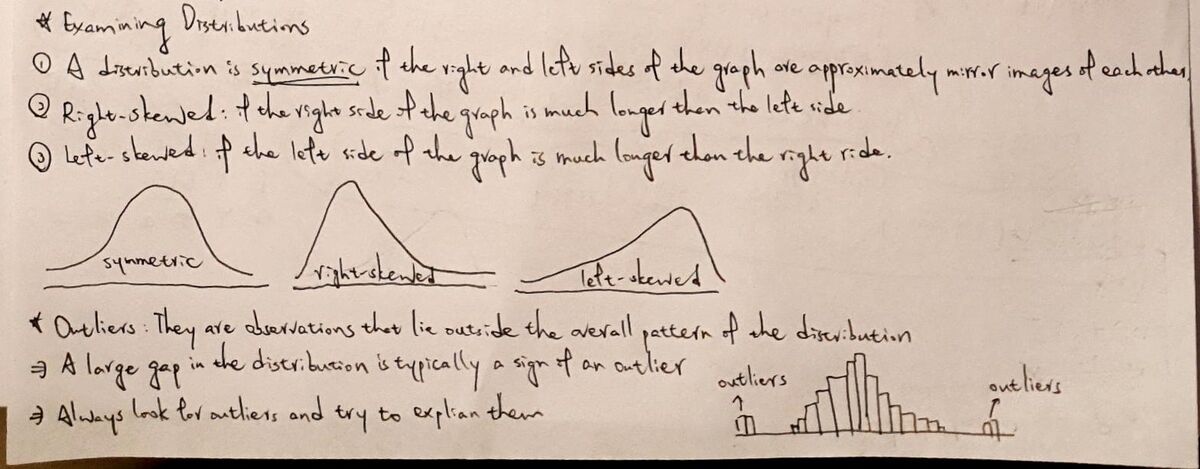 * Examining Distributions
① A distribution is symmetric if the right and left sides of the graph are approximately mirror images of each other.
② Right-skewed: if the right side of the graph is much longer than the left side
③ Left-skewed: if the left side of the graph is much longer than the right ride.
symmetric right-skewed left-skewed
* Outliers: They are observations that lie outside the overall pattern of the distribution
⇒ A large gap in the distribution is typically a sign of an outlier
outliers outliers
⇒ Always look for outliers and try to explian them